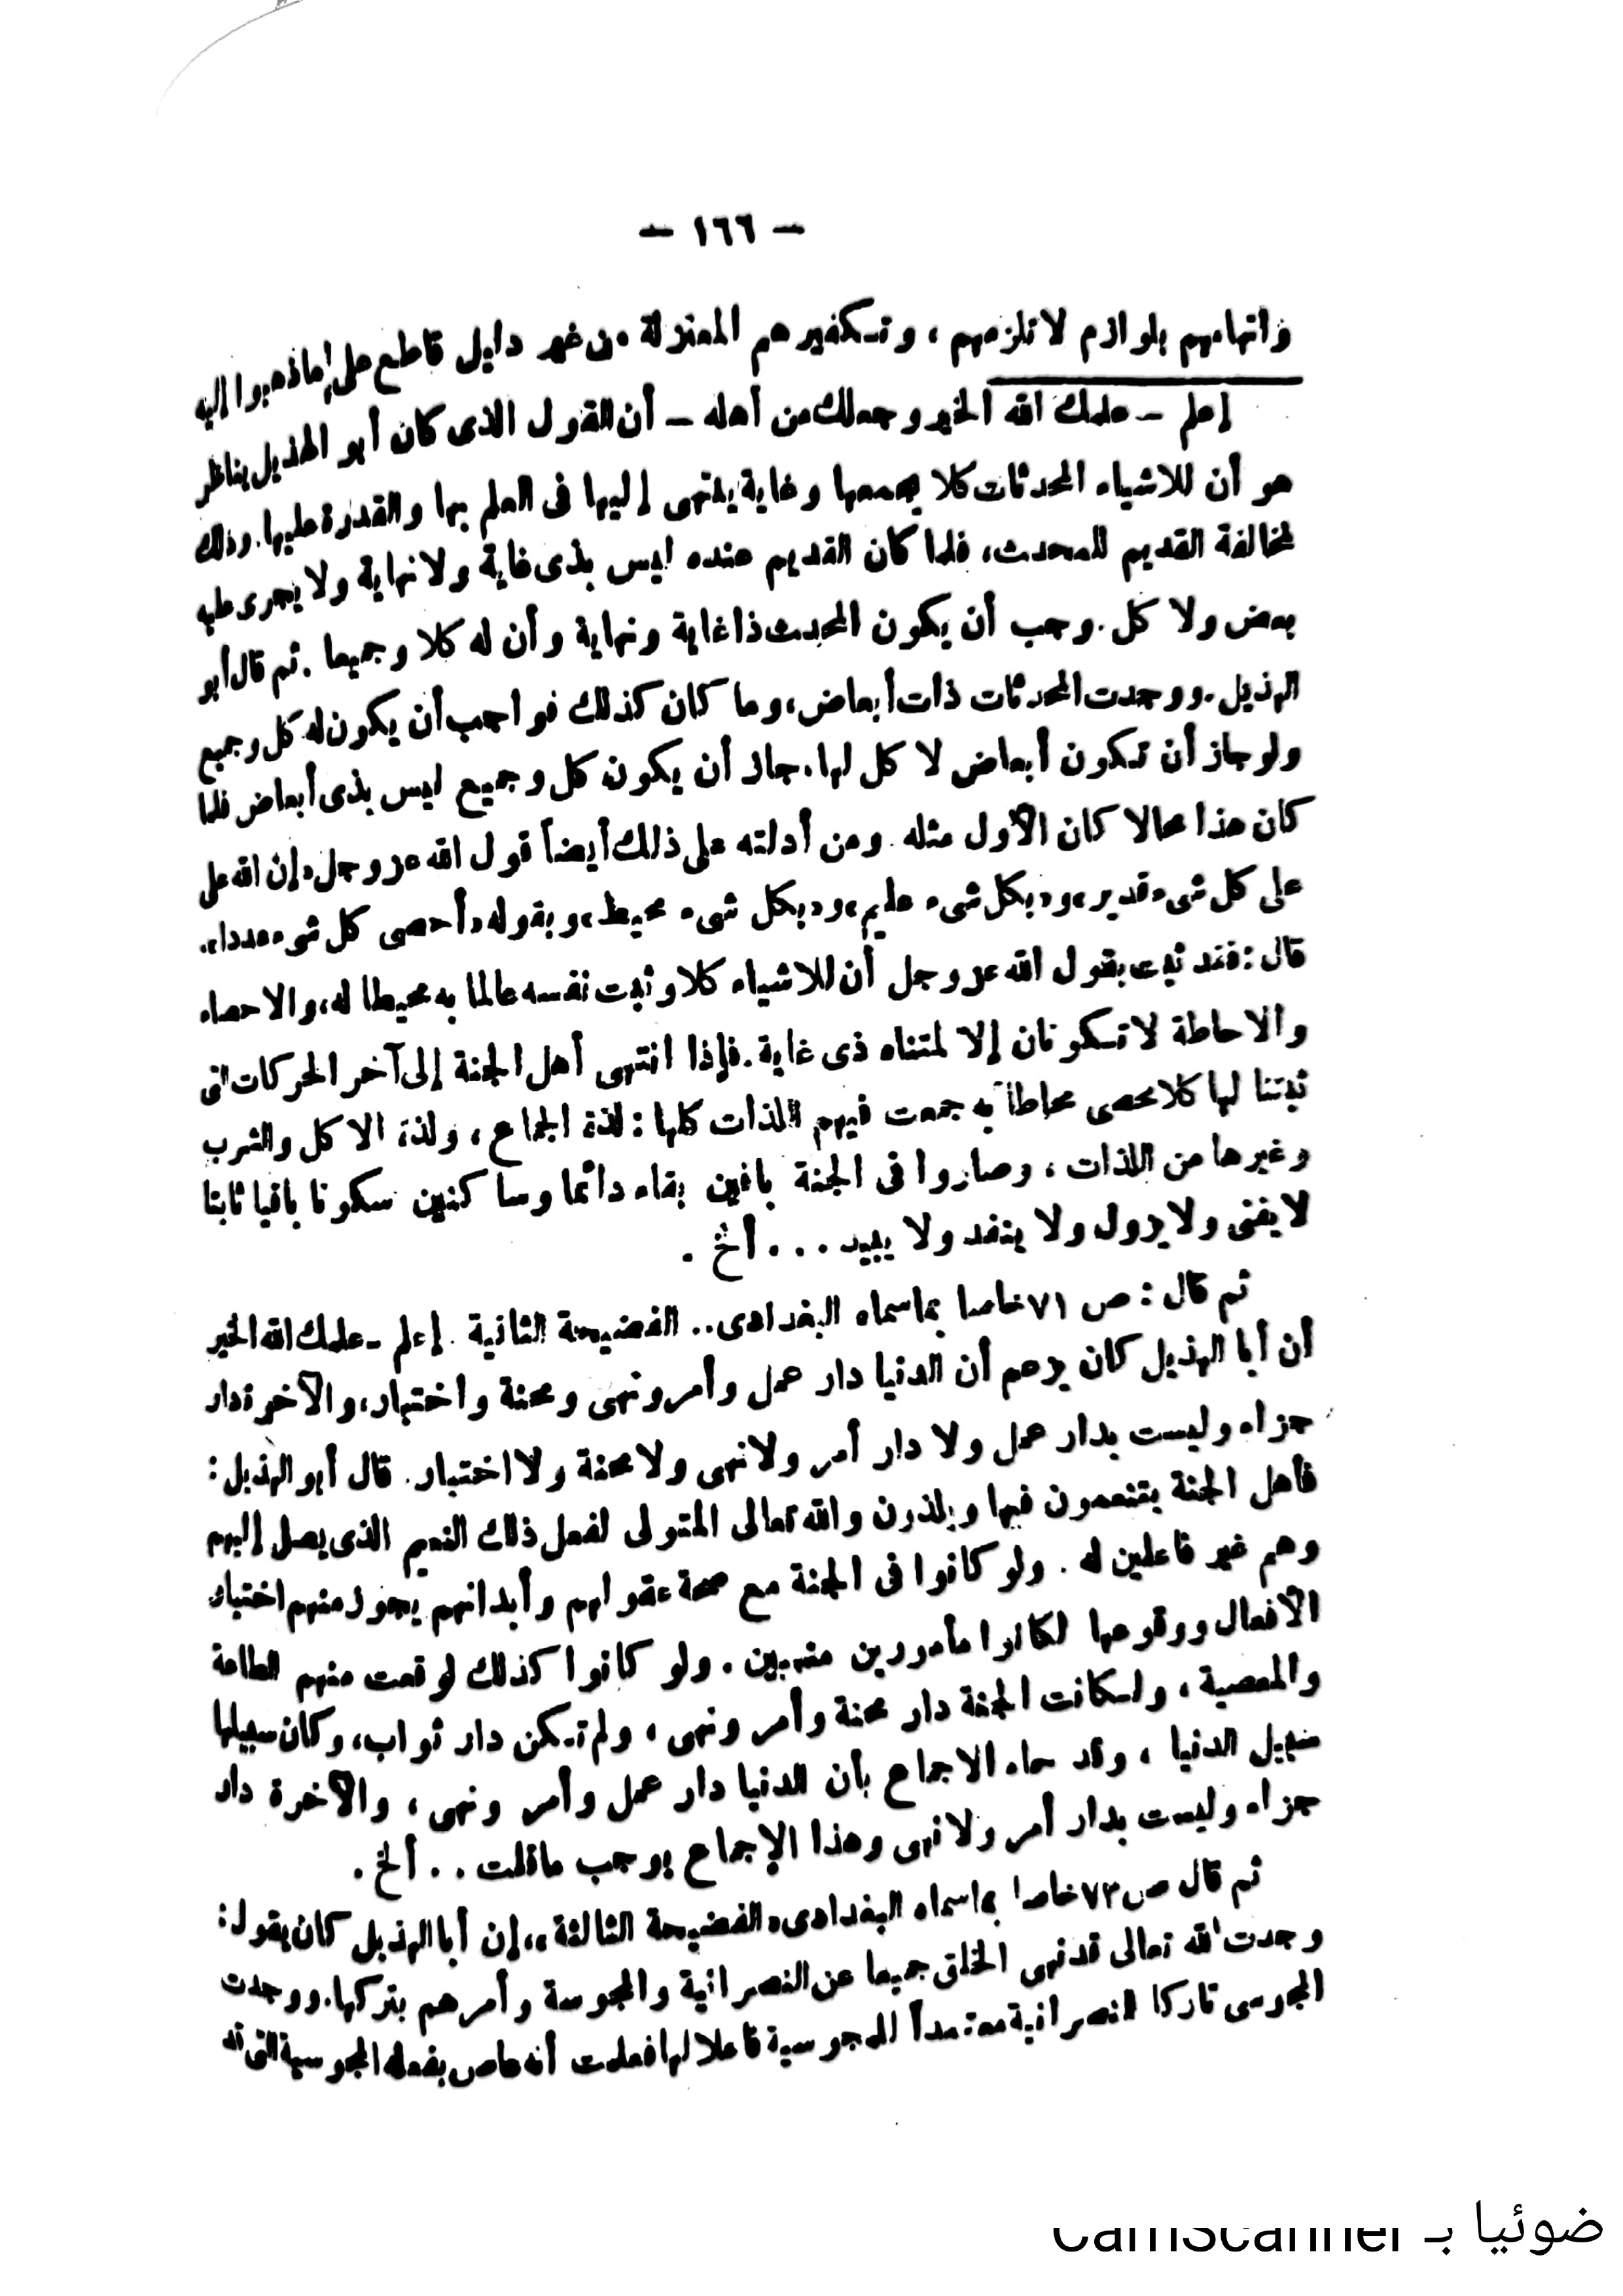 — ١٦٦ —
واتهامهم بلوازم لا تلزمهم ، وتكفيرهم المعتزلة من غير دليل قاطع على ما ذهبوا إليه
إعلم – علمك الله الخير وجعلك من أهله – أن القول الذى كان أبو الهذيل يناظر
هو أن للاشياء المحدثات كلا يجمعها وغاية ينتهى إليها فى العلم بها والقدرة عليها. وذلك
لمخالفة القديم للمحدث، فلما كان القديم عنده ليس بذى غاية ولا نهاية ولا يجرى عليه
بعض ولا كل. وجب أن يكون المحدث ذا غاية ونهاية وأن له كلا وجميعا . ثم قال أبو
الهذيل. ووجدت المحدثات ذات أبعاض، وما كان كذلك فواجب أن يكون له كل وجميع
ولو جاز أن تكون أبعاض لا كل لها. جاز أن يكون كل وجميع ليس بذى أبعاض فلما
كان هذا محالا كان الأول مثله . ومن أدلته على ذلك أيضاً قول الله عز وجل «إن الله على
على كل شىء قدير»، و«بكل شىء عليم»، و«بكل شىء محيط»، وبقوله «أحصى كل شىء عددا».
قال: فقد ثبت بقول الله عز وجل أن للاشياء كلا وثبت نفسه عالما به محيطا له، والاحصاء
والاحاطة لا تكونان إلا لمتناه ذى غاية. فإذا انتهى أهل الجنة إلى آخر الحركات التى
ثبتنا لها كلا محصى محاطاً به جمعت فيهم اللذات كلها : لذة الجماع ، ولذة الاكل والشرب
وغيرها من اللذات ، وصاروا فى الجنة باقين بقاء دائما وساكنين سكونا باقيا ثابتا
لا يفنى ولا يزول ولا ينفد ولا يبيد . . . ألخ .
ثم قال : ص ٧١ خاصا بما سماه البغدادى .. الفضيحة الثانية . إعلم – علمك الله الخير
أن أبا الهذيل كان يزعم أن الدنيا دار عمل وأمر ونهى ومحنة واختبار، والآخرة دار
جزاء وليست بدار عمل ولا دار أمر ولا نهى ولا محنة ولا اختبار. قال أبو الهذيل :
فأهل الجنة يتنعمون فيها ويلذون والله تعالى المتولى لفعل ذلك النعيم الذى يصل إليهم
وهم غير فاعلين له . ولو كانوا فى الجنة مع صحة عقولهم وأبدانهم يجوز منهم اختيار
الأفعال ووقوعها لكانوا مأمورين منهيين . ولو كانوا كذلك لوقعت منهم الطاعة
والمعصية ، ولكانت الجنة دار محنة وأمر ونهى ، ولم تكن دار ثواب، وكان سبيلها
سبيل الدنيا ، وقد جاء الاجماع بأن الدنيا دار عمل وأمر ونهى ، والآخرة دار
جزاء وليست بدار أمر ولا نهى وهذا الإجماع يوجب ما قلت . . ألخ .
ثم قال ص ٧٣ خاصا بما سماه البغدادى «الفضيحة الثالثة»، إن أبا الهذيل كان يقول :
وجدت الله تعالى قد نهى الخلق جميعا عن النصرانية والمجوسة وأمرهم بتركها. ووجدت
المجوسى تاركا للنصرانية معتمداً للمجوسية فاعلا لها فعلمت أنه عاص بفعله المجوسية التى
ضوئيا بـ CamScanner